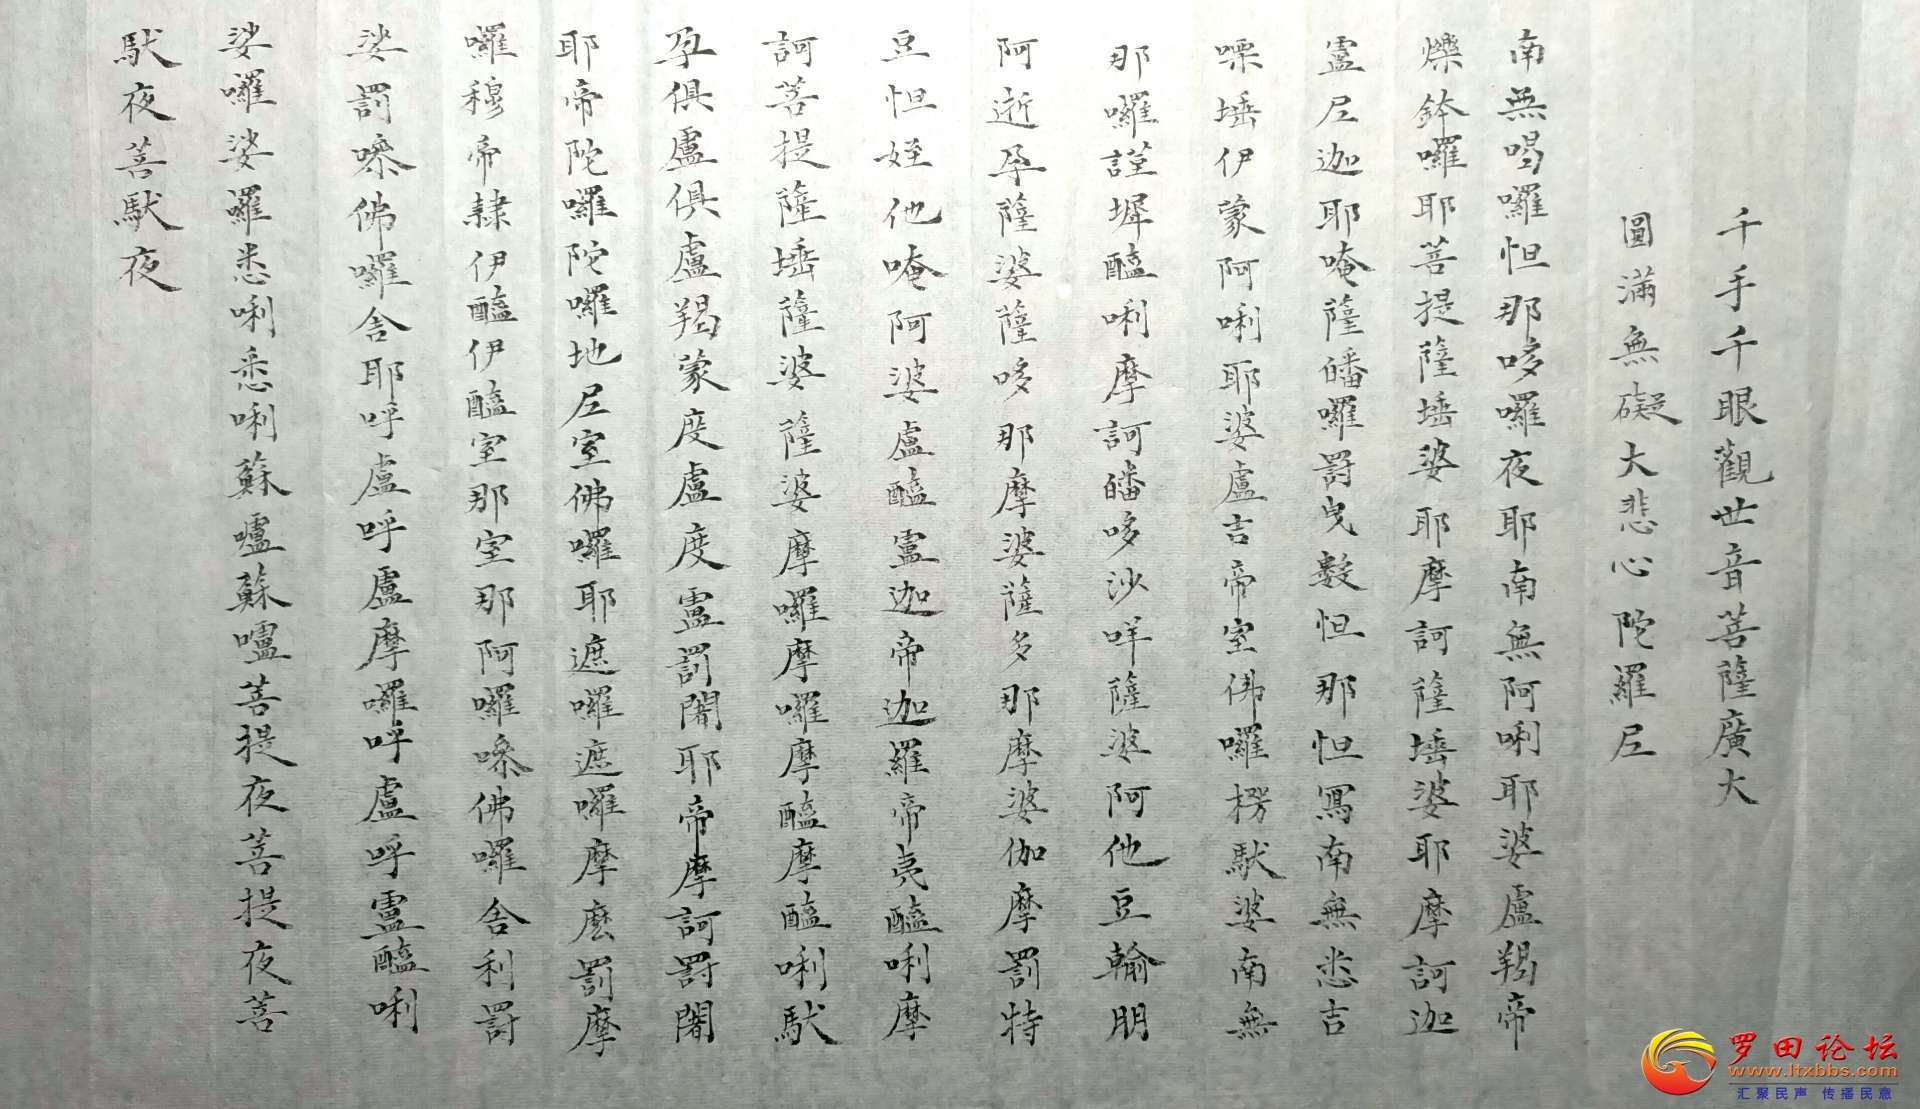 千手千眼觀世音菩薩廣大
圓滿無礙大悲心陀羅尼
南無喝囉怛那哆囉夜耶南無阿唎耶婆盧羯帝
爍鉢囉耶菩提薩埵婆耶摩訶薩埵婆耶摩訶迦
盧尼迦耶唵薩皤囉罰曳數怛那怛寫南無悉吉
嘌埵伊蒙阿唎耶婆盧吉帝室佛囉楞馱婆南無
那囉謹墀醯唎摩訶皤哆沙咩薩婆阿他豆輸朋
阿逝孕薩婆薩哆那摩婆薩多那摩婆伽摩罰特
豆怛姪他唵阿婆盧醯盧迦帝迦羅帝夷醯唎摩
訶菩提薩埵薩婆薩婆摩囉摩囉摩醯摩醯唎馱
孕俱盧俱盧羯蒙度盧度盧罰闍耶帝摩訶罰闍
耶帝陀囉陀囉地尼室佛囉耶遮囉遮囉摩麼罰摩
囉穆帝隸伊醯伊醯室那室那阿囉嘇佛囉舍利罰
娑罰嘇佛囉舍耶呼盧呼盧摩囉呼盧呼盧醯唎
娑囉娑囉悉唎悉唎蘇嚧蘇嚧菩提夜菩提夜菩
馱夜菩馱夜
罗田论坛
www.ltxbbs.com
汇聚民声 传播民意